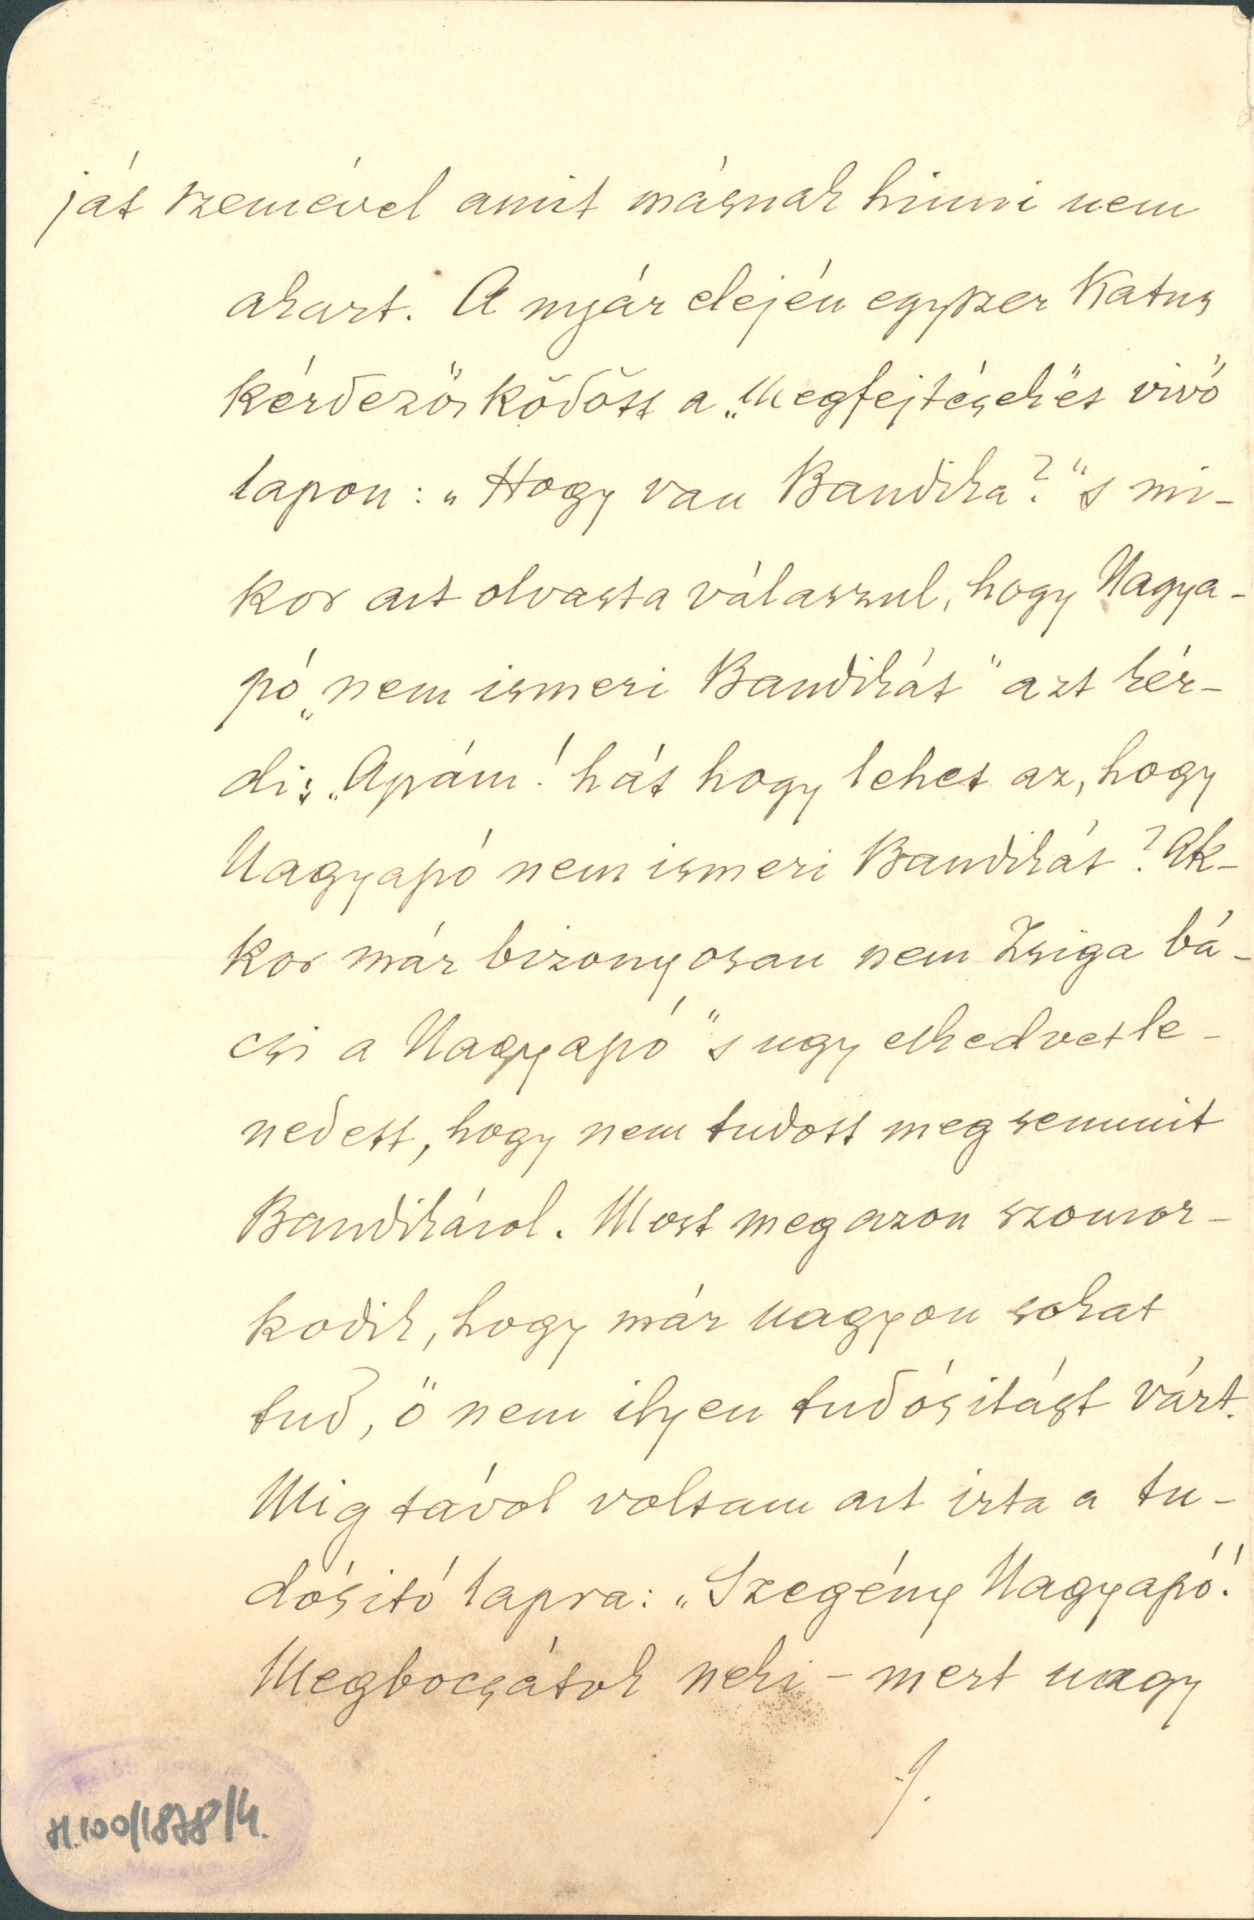 ját szemével amit másnak hinni nem
akart. A nyár elején egyszer Katus
kérdezősködött a „Megfejtések"et vivő
lapon: „Hogy van Bandika?" s mi-
kor azt olvasta válaszul, hogy Nagya-
pó „nem ismeri Bandikát" azt kér-
di: „Apám! hát hogy lehet az, hogy
Nagyapó nem ismeri Bandikát? Ak-
kor már bizonyosan nem Zsiga bá-
csi a Nagyapó" s ugy elkedvetle-
nedett, hogy nem tudott meg semmit
Bandikáról. Most meg azon szomor-
kodik, hogy már nagyon sokat
tud, ő nem ilyen tudósitást várt.
Mig távol voltam azt irta a tu-
dósitó lapra: „Szegény Nagyapó!
Megbocsátok neki – mert nagy
Petőfi Irodalmi
Múzeum